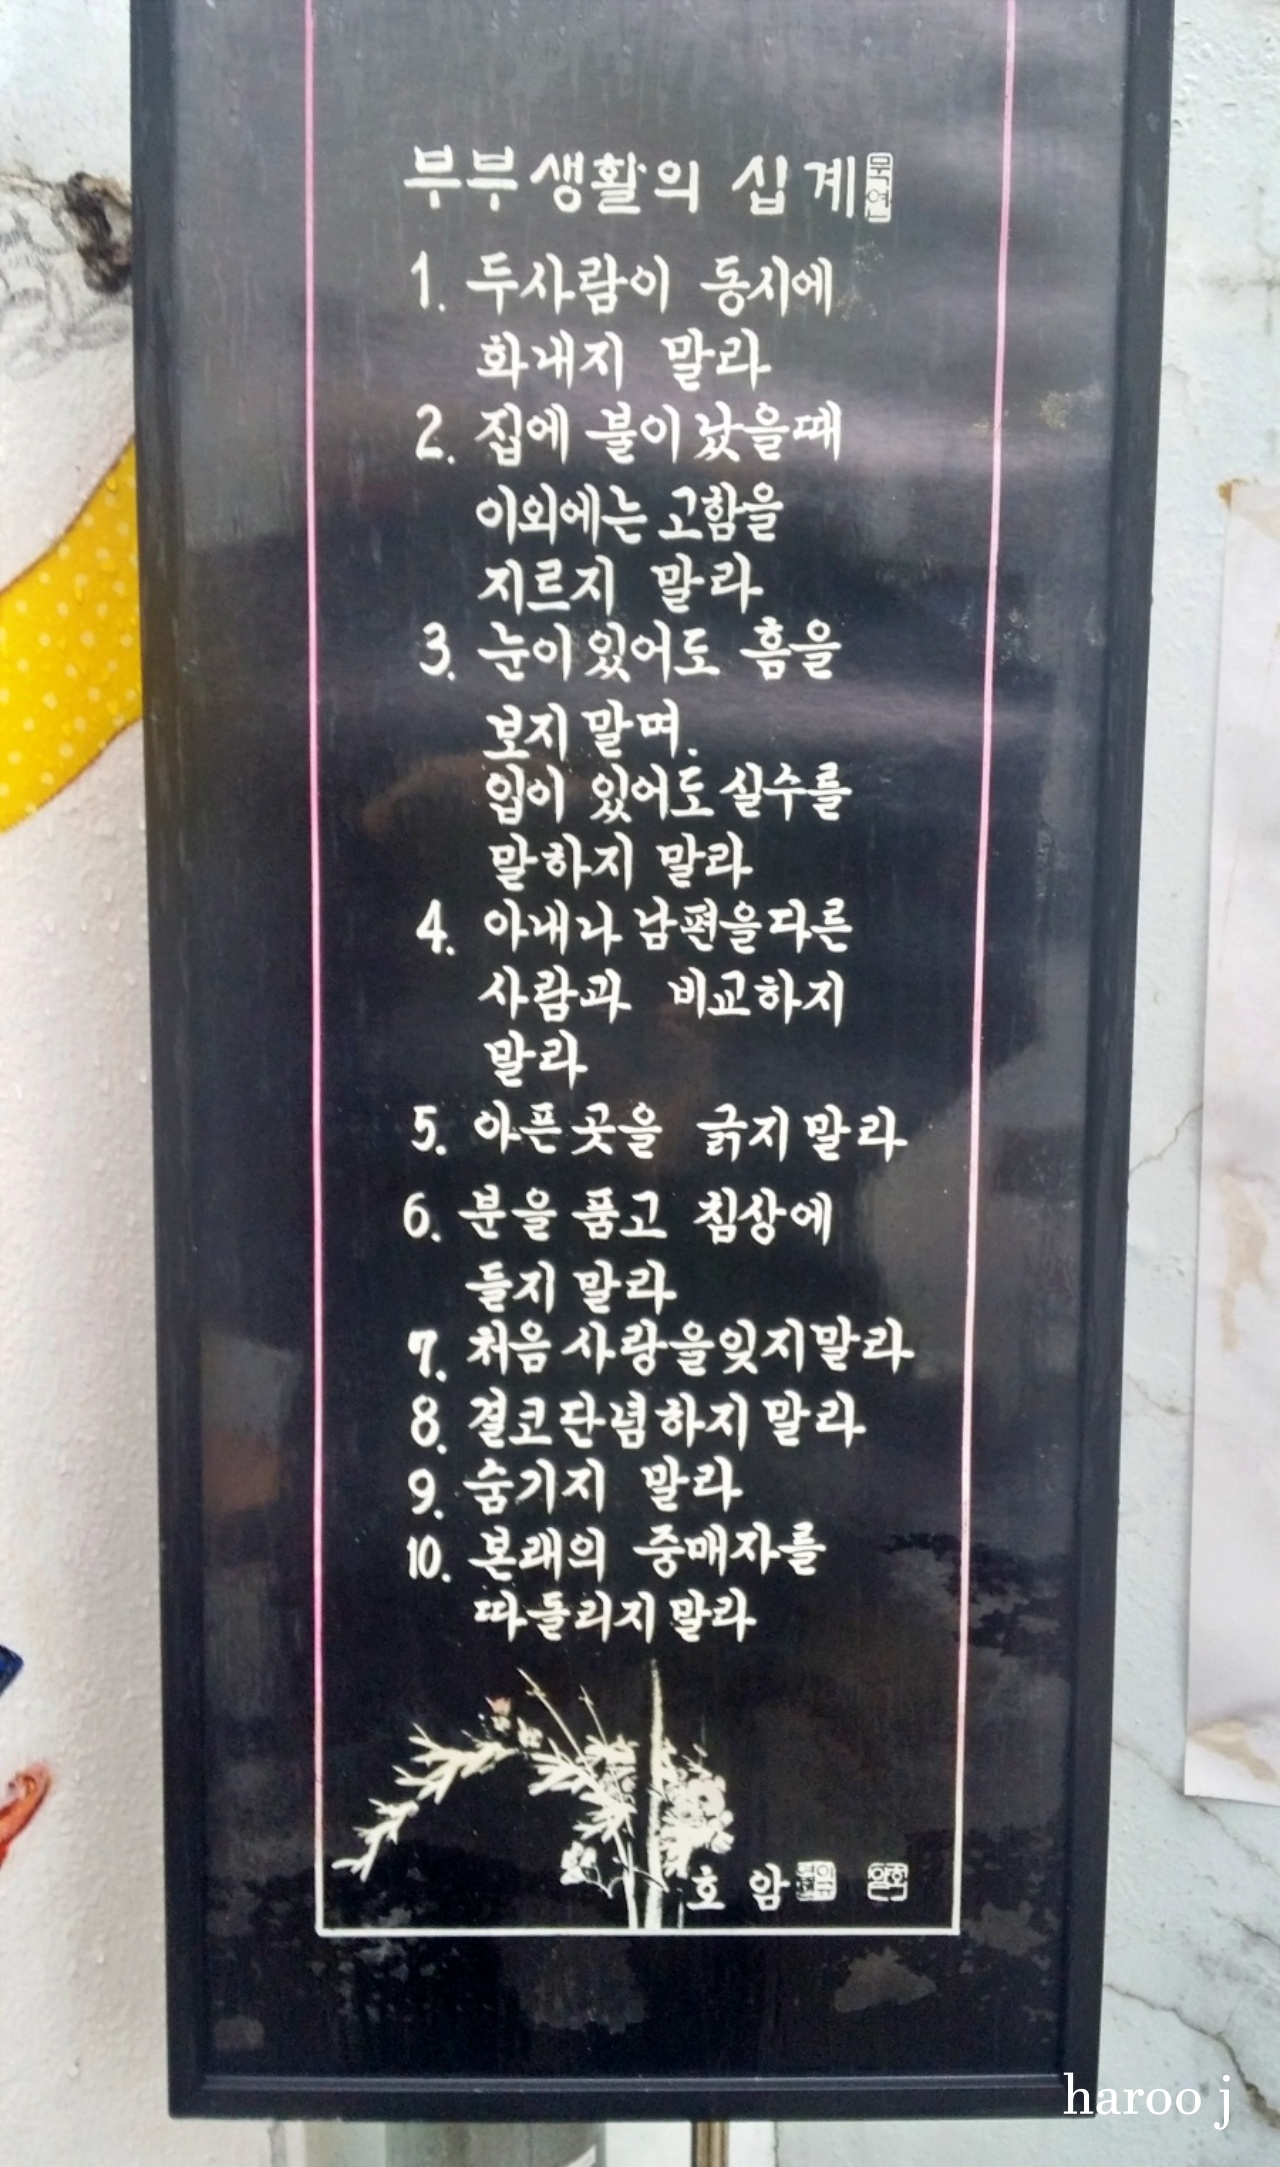 부부생활의 십계
1. 두사람이 동시에
화내지 말라
2. 집에 불이났을때
이외에는 고함을
지르지 말라
3. 눈이있어도 흠을
보지말며.
입이 있어도실수를
말하지 말라
4. 아내나남편을다른
사람과 비교하지
말라
5. 아픈곳을 긁지말라
6. 분을품고 침상에
들지말라
7. 처음사랑을잊지말라
8. 결코단념하지말라
9. 숨기지 말라
10. 본래의 중매자를
따돌리지말라
호암
haroo j